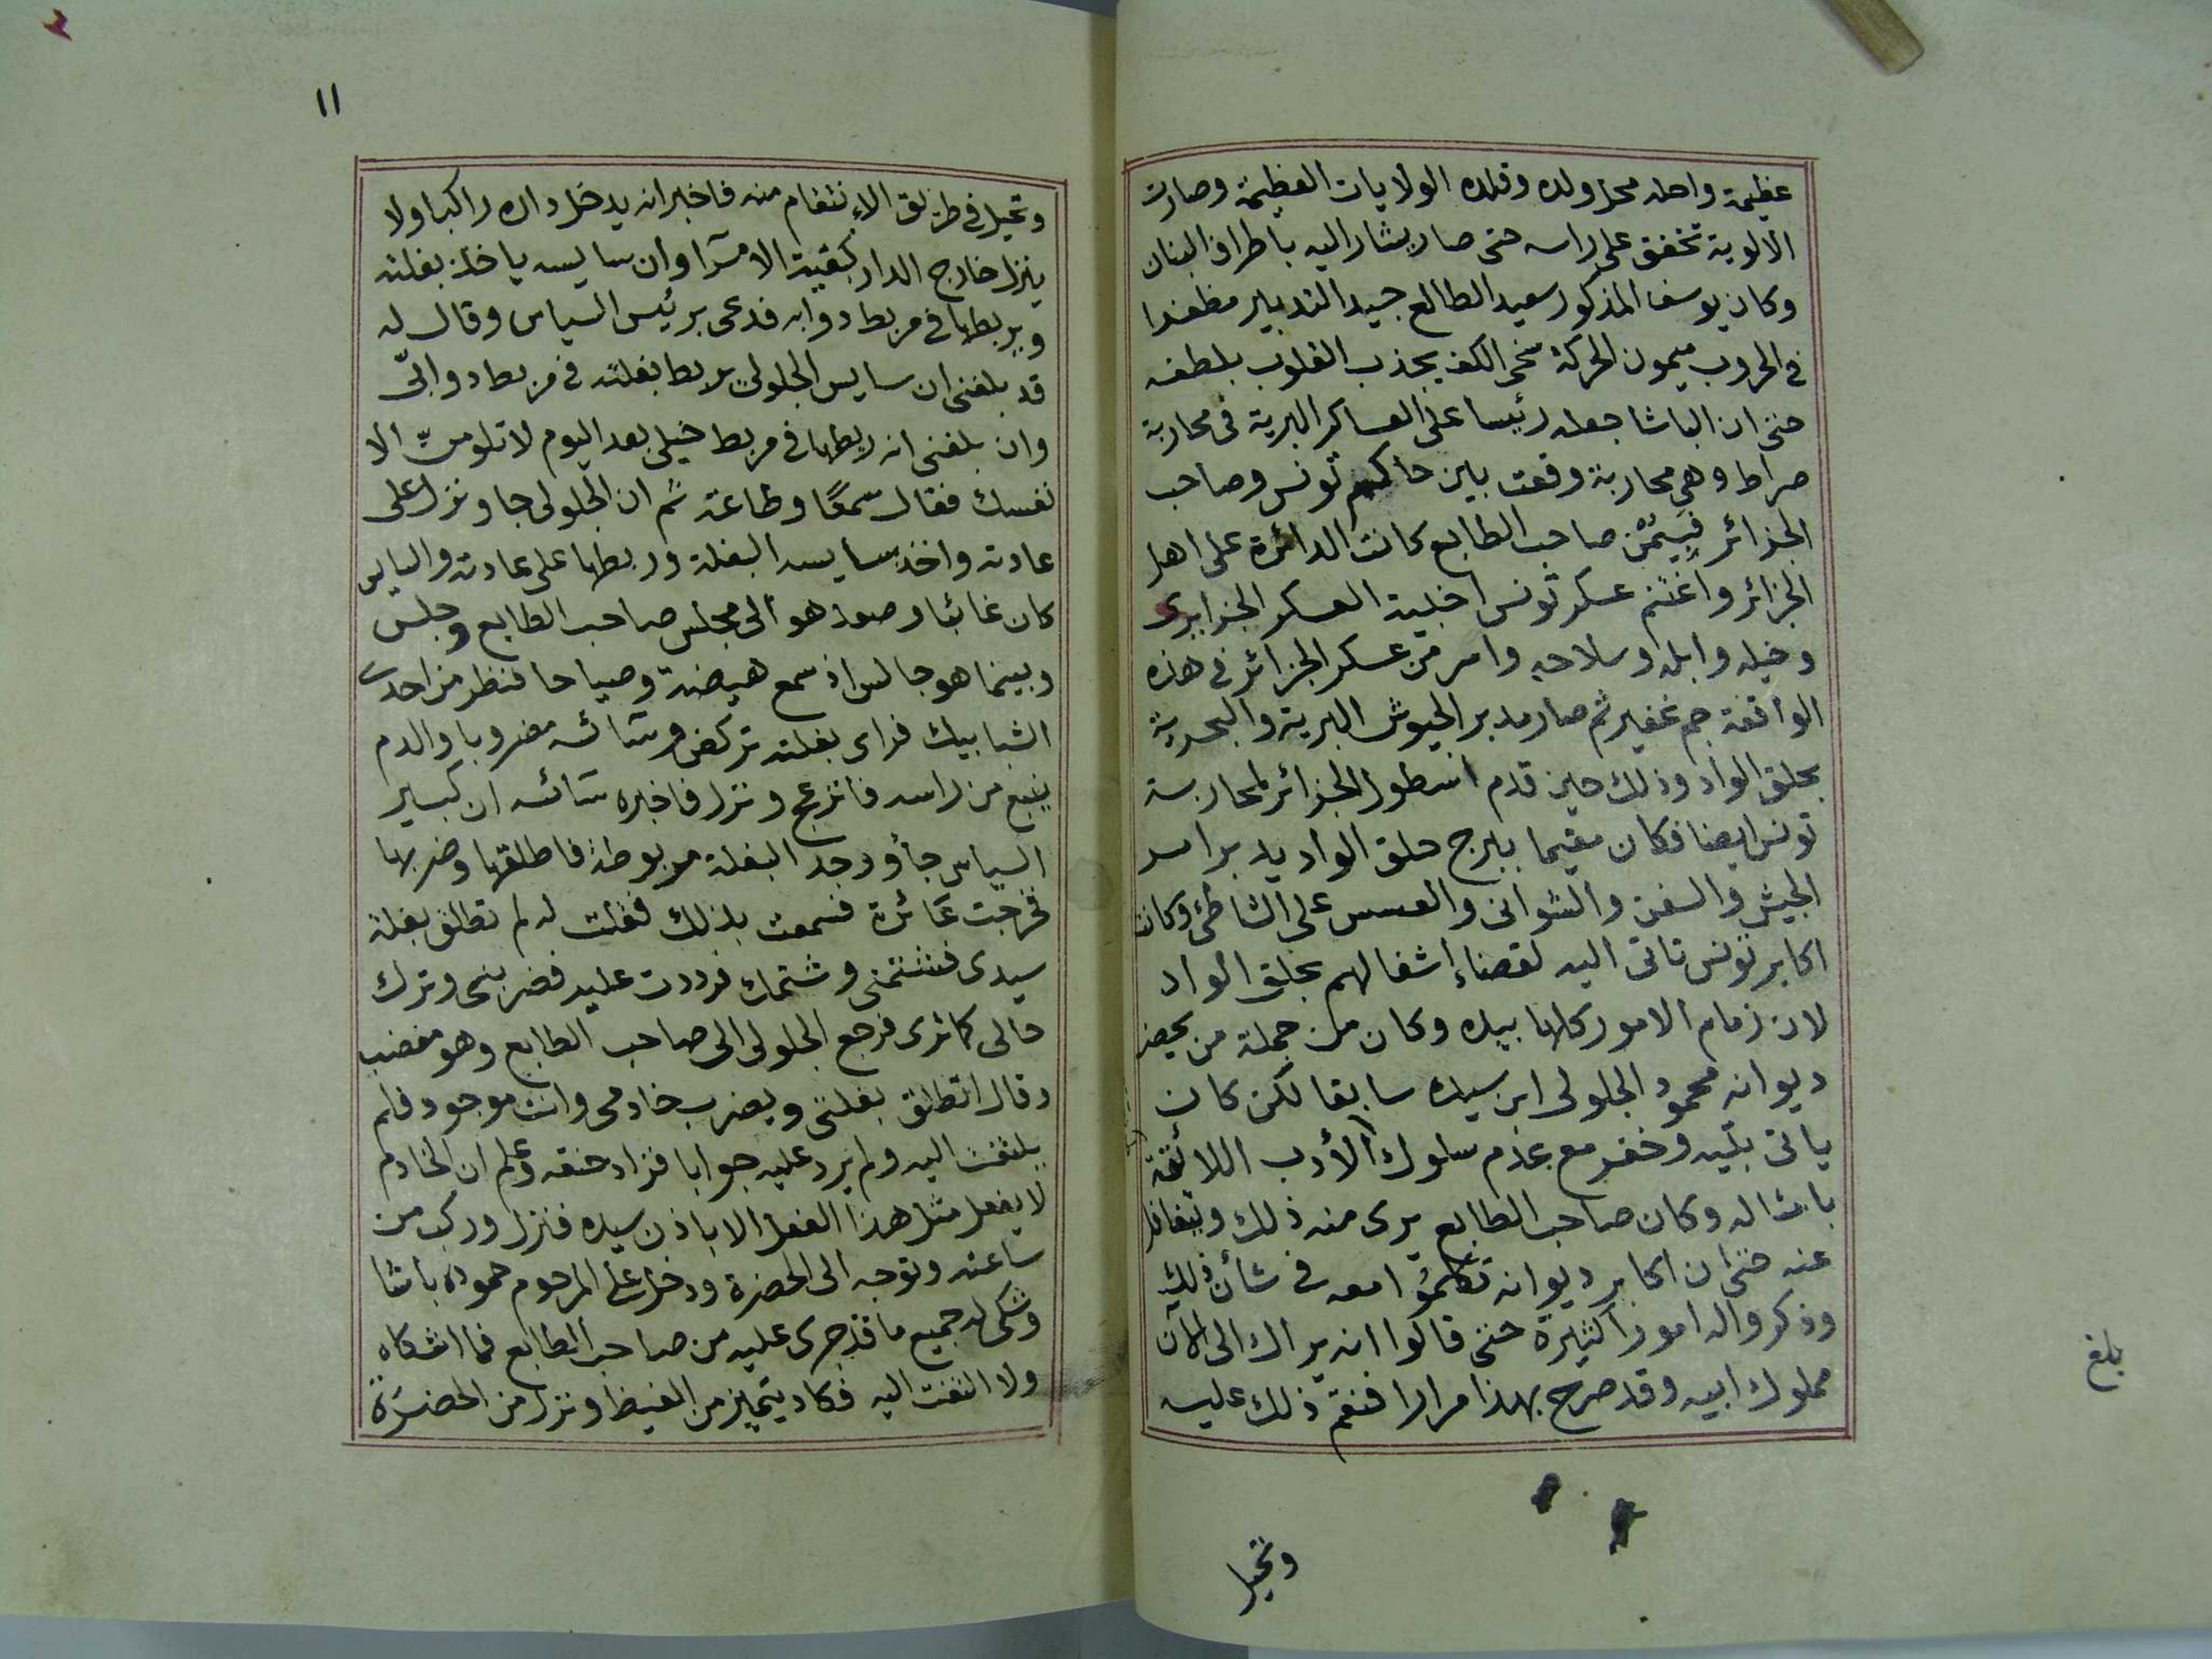 عظيمة واحله محل ولده وقلده الولايات العظيمة وصارت
الالوية تخفق على راسه حتى صار يشار اليه باطراف البنان
وكان يوسف المذكور سعيد الطالع جيد التدبير مظفرا
في الحروب ميمون الحركة سخى الكف يجذب القلوب بلطفه
حتى ان الباشا جعله رئيسا على العساكر البرية في محاربة
صراط وهى محاربة وقعت بين حاكم تونس وصاحب
الجزائر فبيُمْن صاحب الطابع كانت الدائرة على اهل
الجزائر واغتنم عسكر تونس اخبية العسكر الجزايرى
وخيله وابله وسلاحه واسر من عسكر الجزائر في هذه
الواقعة جم غفير ثم صار مدبر الجيوش البرية والبحرية
بحلق الواد وذلك حين قدم اسطول الجزائر لمحاربة
تونس ايضا فكان مقيما ببرج حلق الواد يدبر امر
الجيش والسفن والشوانى والعسس على الشاطئ وكانت
اكابر تونس تاتى اليه لقضاء اشغالهم بحلق الواد
لان زمام الامور كلها بيده وكان من جملة من يحضر
ديوانه محمود الجلولى ابن سيده سابقا لكن كان
ياتى بتيه وفخر مع عدم سلوك الأدب اللائقة
بامثاله وكان صاحب الطابع يرى منه ذلك ويتغافل
عنه حتى ان اكابر ديوانه تكلموُا معه في شأن ذلك
وذكروا له امورا كثيرة حتى قالوا انه يراك الى الآن
مملوك ابيه وقد صرح بهذا مرارا فنقم ذلك عليه
وتحيل
بلغ
١١
وتحيل في طريق الاءنتقام منه فاخبر انه يدخل داره راكبا ولا
ينزل خارج الدار كبقية الامرآ وان سايسه ياخذ بغلته
ويربطها في مربط دوابه فدعى برئيس السياس وقال له
قد بلغنى ان سايس الجلولى يربط بغلته في مربط دوابّى
وان بلغنى انه ربطها في مربط خيلى بعد اليوم لا تلومنّ الا
نفسك فقال سمعًا وطاعة ثم ان الجلولى جا ونزل على
عادته واخذ سايسه البغلة وربطها على عادته والسايس
كان غائبا وصعد هو الى مجلس صاحب الطابع وجلس
وبينما هو جالس اذ سمع هيضة وصياحا فنظر من احدى
الشبابيك فراى بغلته تركض وسائسه مضروبا والدم
ينبع من راسه فانزعج ونزل فاخبره سائسه ان كبير
السياس جأ ووجد البغلة مربوطة فاطلقها وضربها
فخرجت عائرة فسمعت بذلك فقلت له لم تطلق بغلة
سيدى فشتمنى وشتمك فرددت عليه فضربنى وترك
حالى كما ترى فرجع الجلولى الى صاحب الطابع وهو مغضب
وقال اتطلق بغلتى ويضرب خادمى وانت موجود فلم
يلتفت اليه ولم يرد عليه جوابا فزاد حنقه وعلم ان الخادم
لا يفعل مثل هذا الفعل الا باذن سيده فنزل وركب من
ساعته وتوجه الى الحضرة ودخل على المرحوم حموده باشا
وشكى له جميع ما قد جرى عليه من صاحب الطابع فما اشكاه
ولا التفت اليه فكاد يتميز من الغيظ ونزل من الحضرة